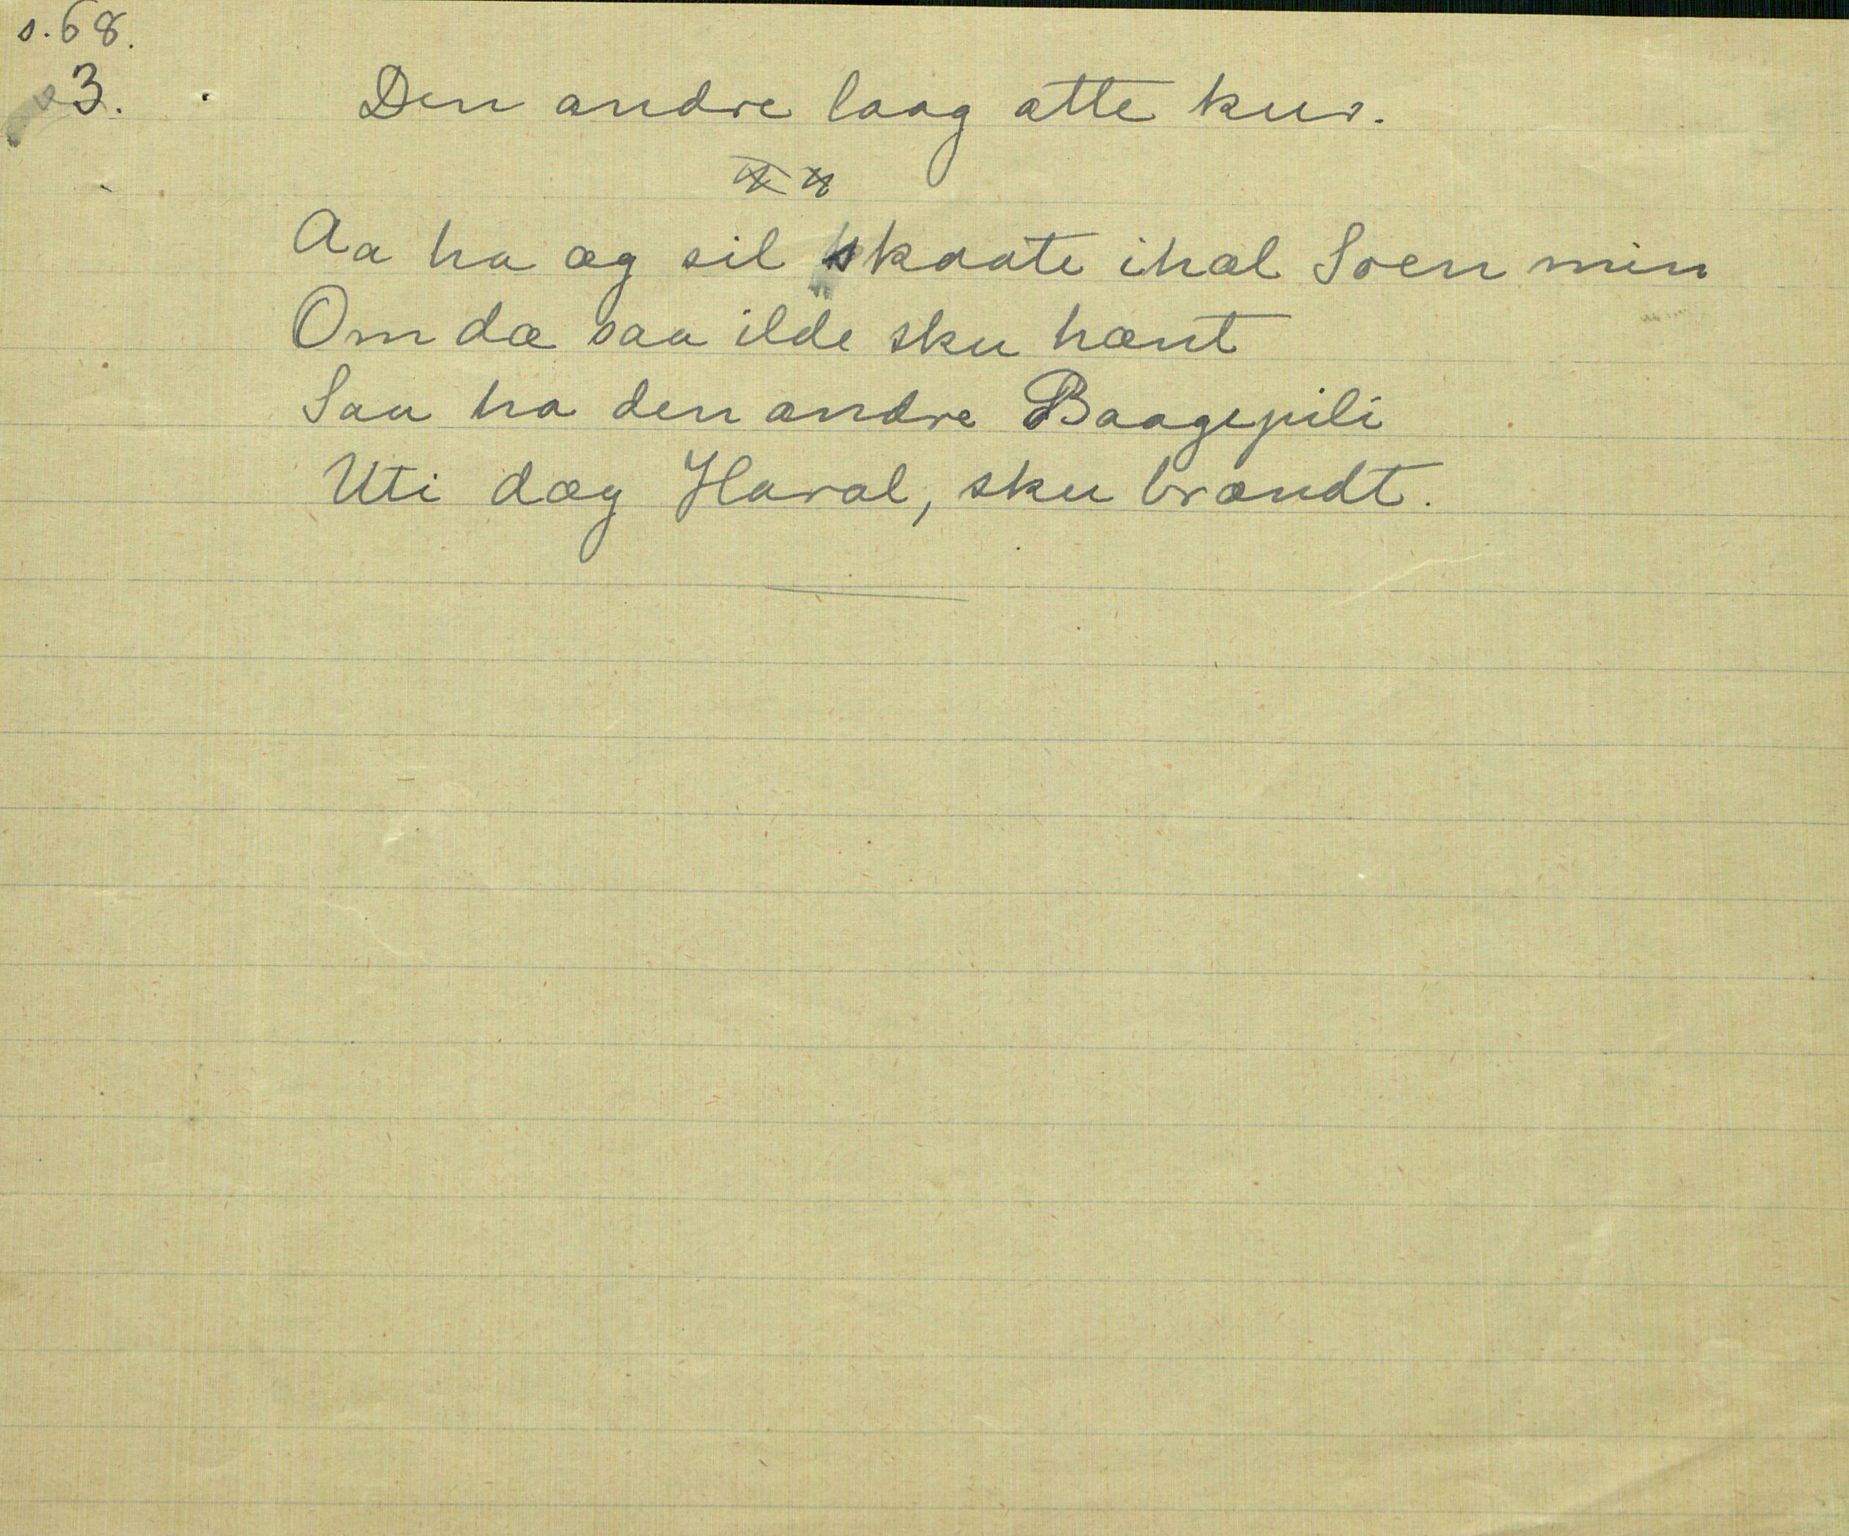 s. 68.
3. Den andre laag atte kur.
Aa ha æg sil skaate ihæl Soen min
Om dæ saa ilde sku hænt
Saa ha den andre Baagepili
Uti dæg Haral, sku brændt.